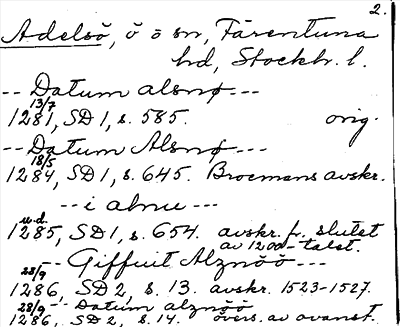 2.
Adelsö, ö o sn, Färentuna
hd, Stockh. l.
-- Datum alsnø ---
13/7
1281, SD 1, s. 585. orig.
-- Datum Alsnø --
18/5
1284, SD 1, s. 645. Broemans avskr.
-- i alnu ---
u.d.
1285, SD 1, s. 654. avskr. fr. slutet
av 1200-talet.
-- Giffuit Alznöö ---
28/9
1286, SD 2, s. 13. avskr. 1523-1527.
28/9 - Datum alznöö
1286, SD 2, s. 14. övers. av ovanst.